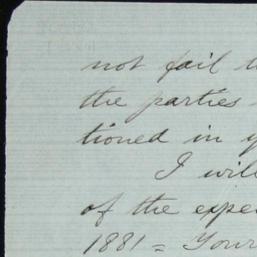 not fail
the parties
tioned in
I will
of the expe
1881 = Your